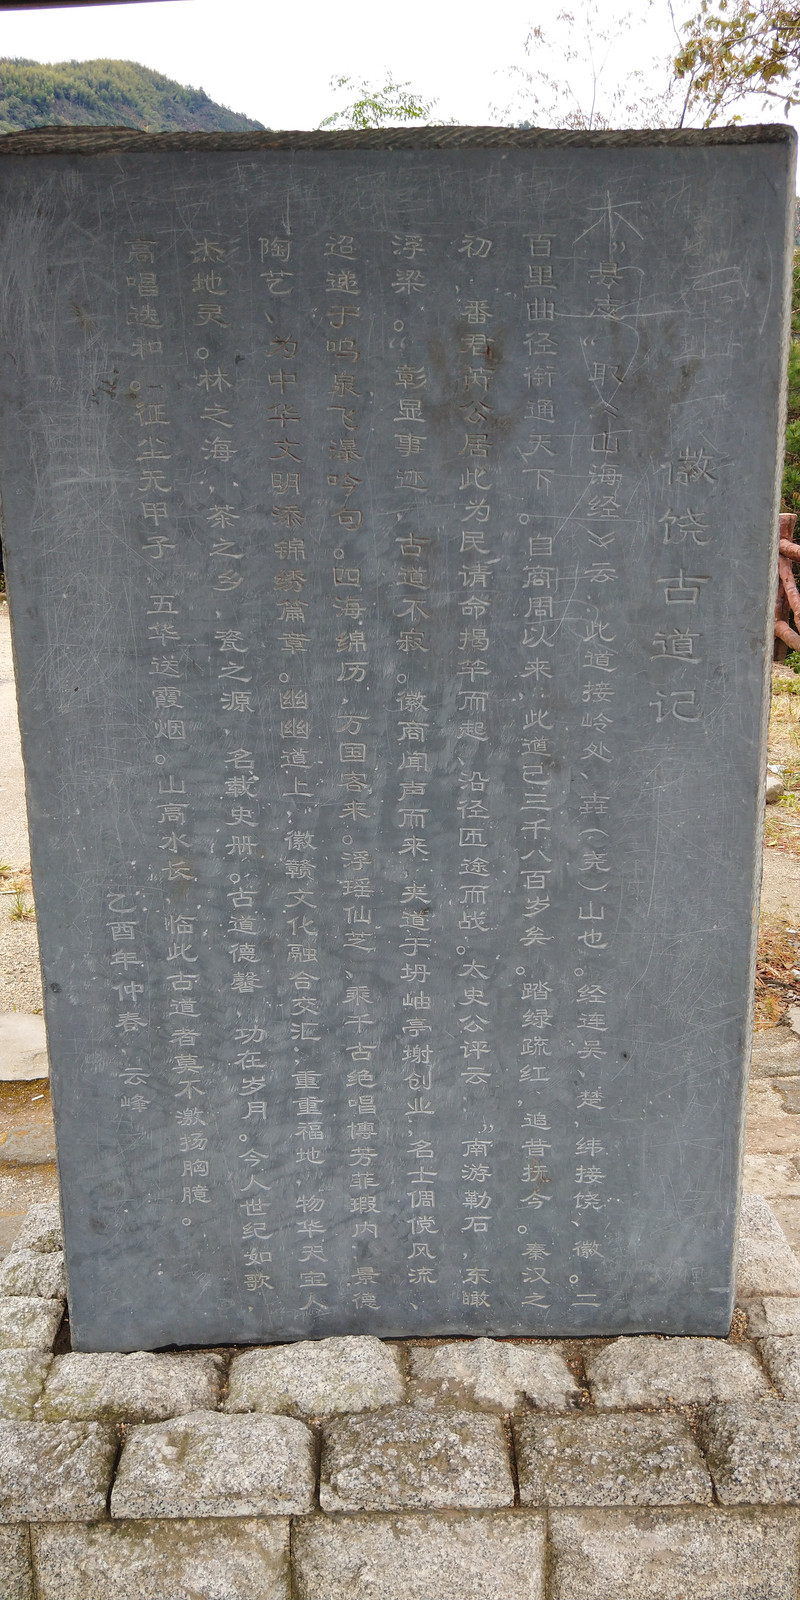 徽饶古道记
“县志“取《山海经》云，此道接岭处、垚（尧）山也。经连吴、楚，纬接饶、徽。二
百里曲径衔通天下。自商周以来，此道已三千八百岁矣。踏绿疏红，追昔抚今。秦汉之
初，番君芮公居此为民请命揭竿而起、沿径匝途而战。太史公评云，”南游勒石，东瞰
浮梁。“彰显事迹，古道不寂。徽商闻声而来，夹道于坍岫亭榭创业，名士倜傥风流、
迢递于鸣泉飞瀑吟句。四海绵历，万国客来。浮瑶仙芝、乘千古绝唱博芳菲瑕内，景德
陶艺、为中华文明添锦绣篇章。幽幽道上，徽赣文化融合交汇，重重福地，物华天宝人
杰地灵。林之海，茶之乡，瓷之源，名载史册。古道德馨，功在岁月。今人世纪如歌，
高唱迭和。“征尘无甲子，五华送霞烟。山高水长，临此古道者莫不激扬胸臆。
乙酉年仲春，云峰